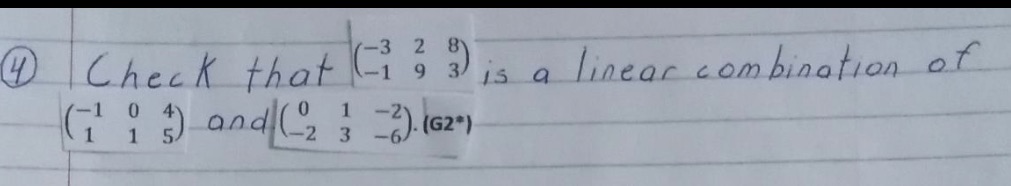 4 Check that (-3 2 8 -1 9 3) is a linear combination of
(-1 0 4 1 1 5) and (0 1 -2 -2 3 -6). (G2*)